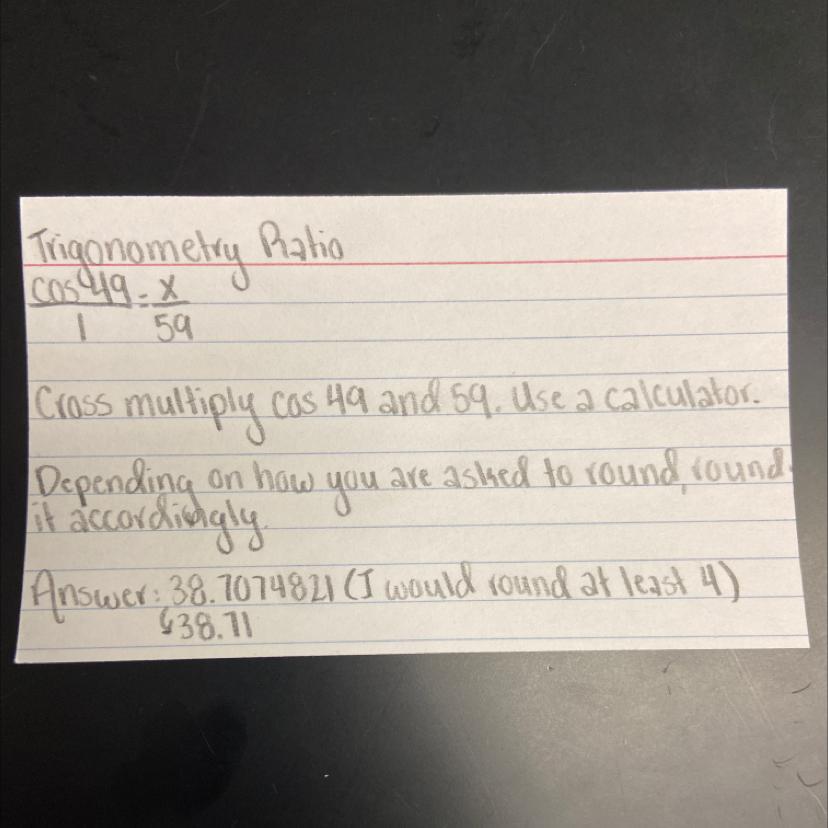 Trigonometry Ratio
cos 49 = x
1 59
Cross multiply cos 49 and 59. Use a calculator.
Depending on how you are asked to round, round
it accordingly.
Answer: 38.7074821 (I would round at least 4)
↳38.71